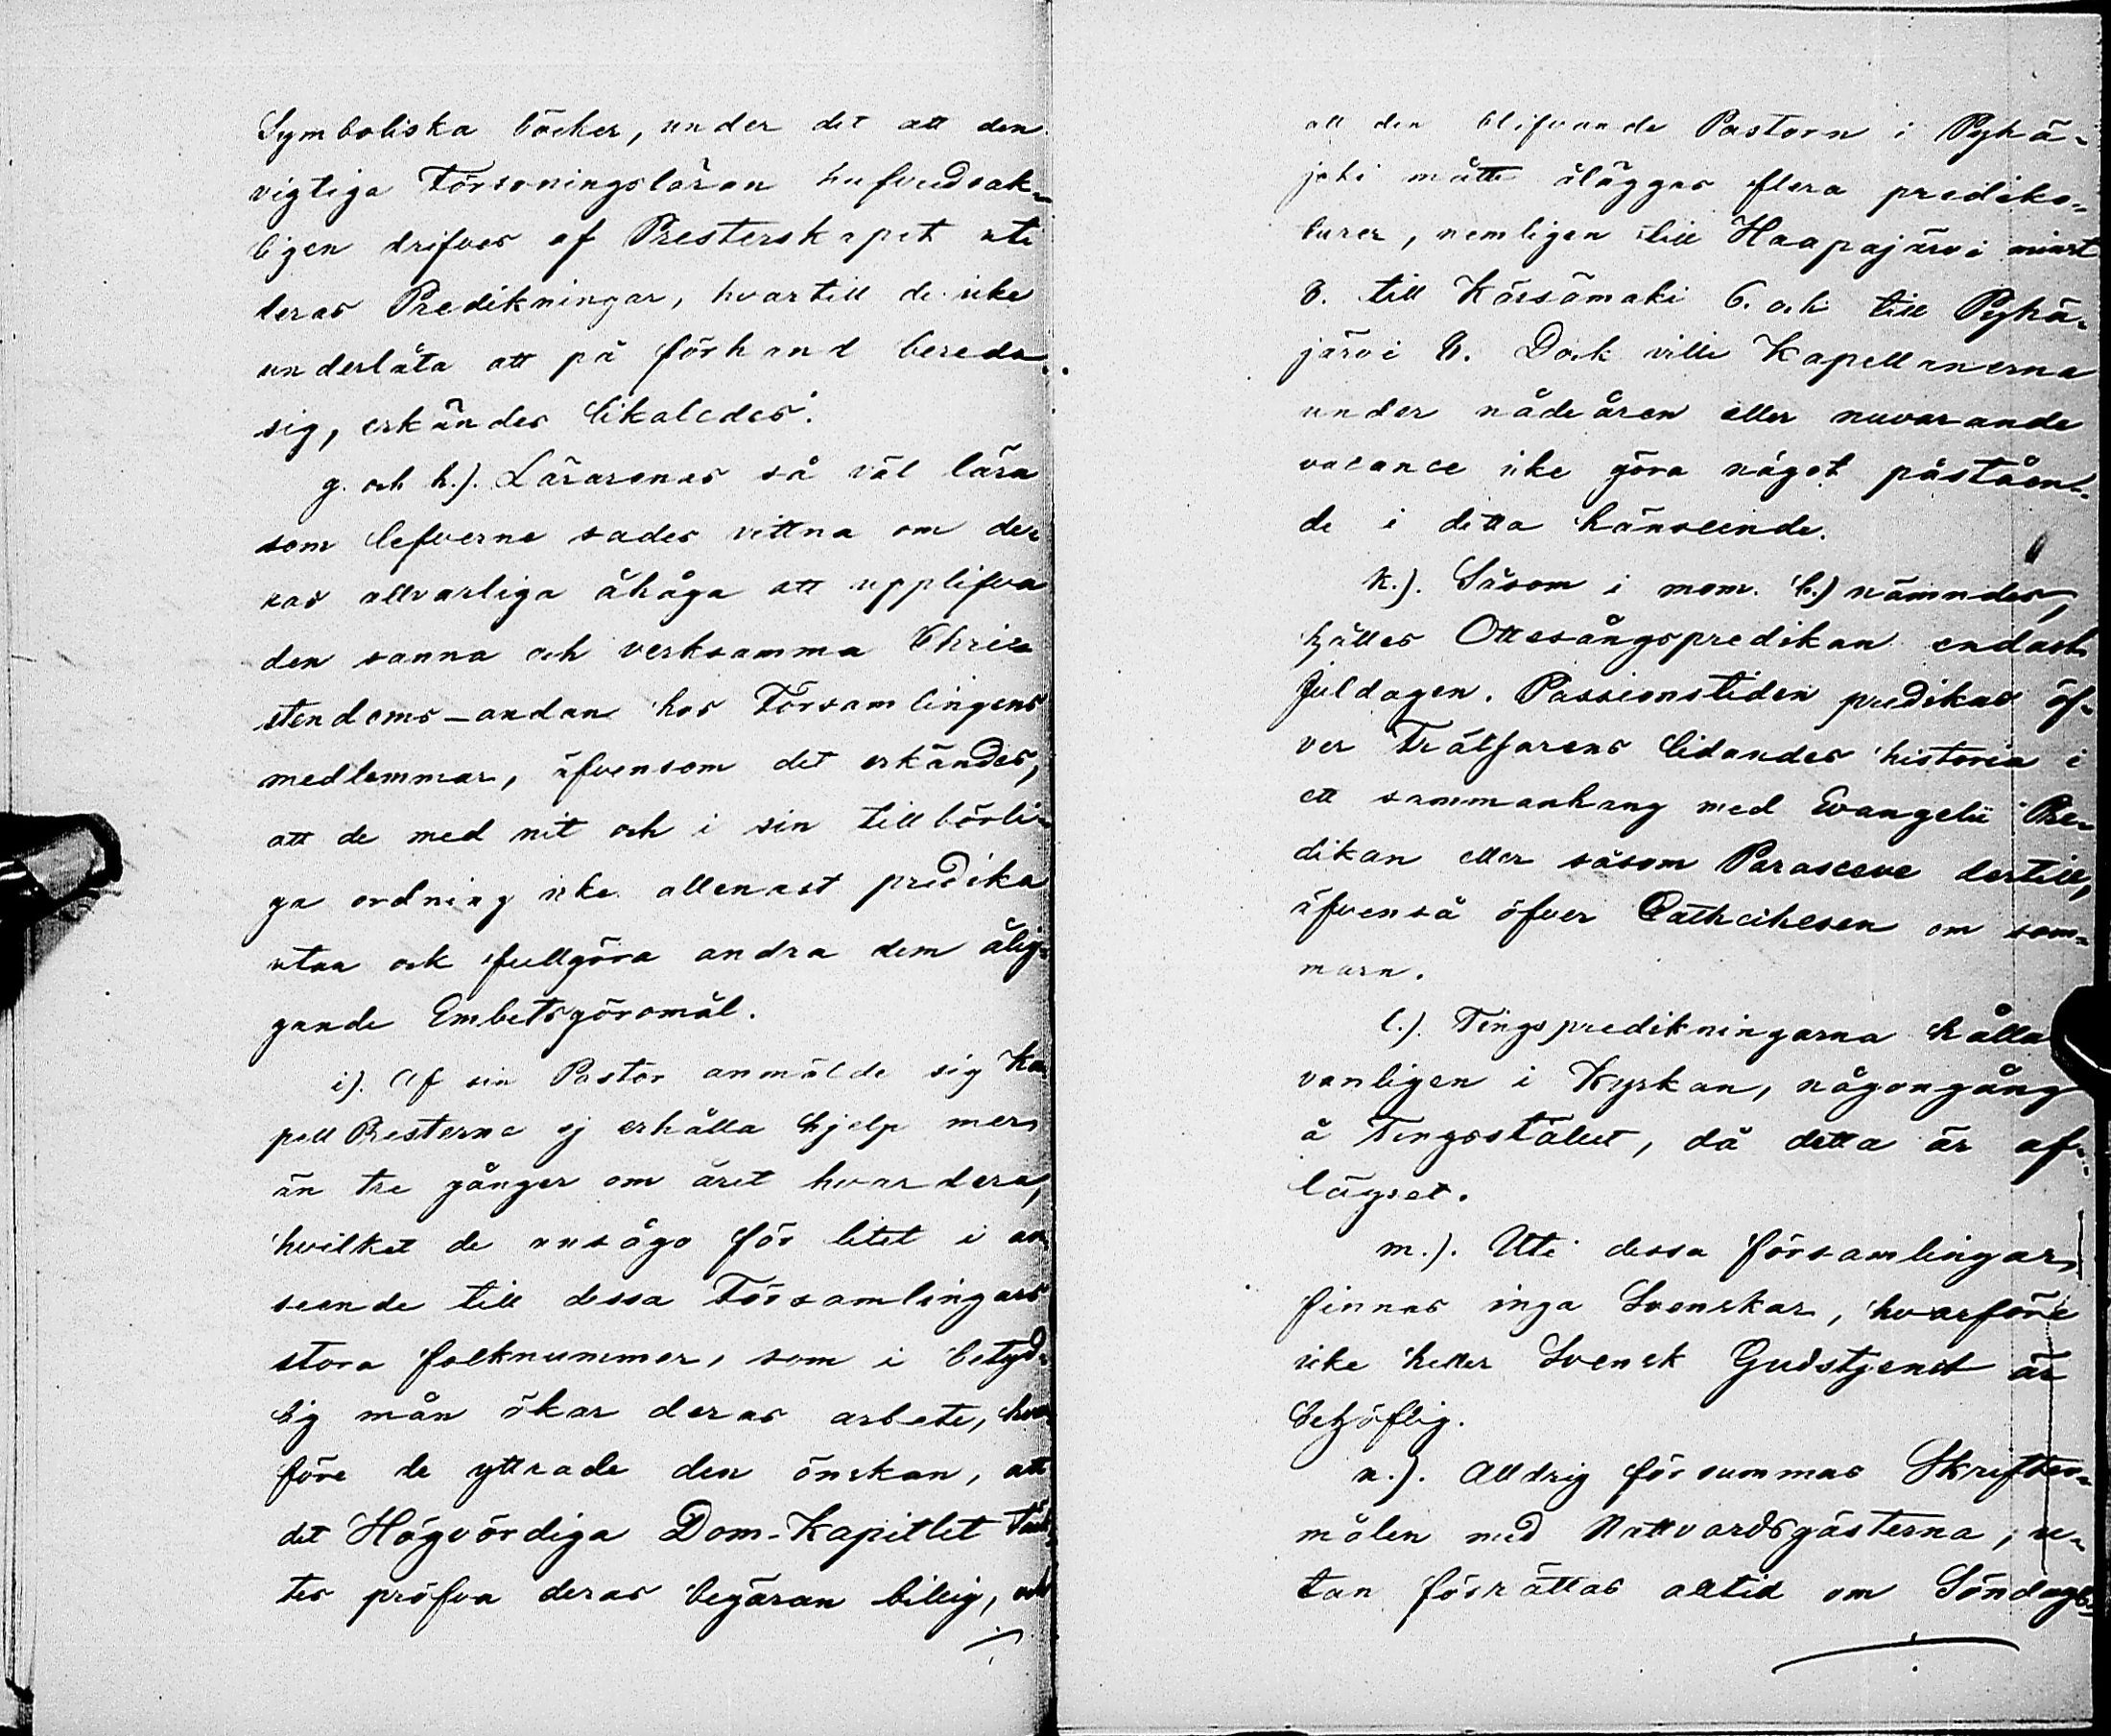 Symboliska böcker, under det att den
vigtiga Försoningsläran hufvudsak-
ligen drifves af Presterskapet uti
deras Predikningar, hvartill de icke
underlåta att på förhand bereda
sig, erkändes likaledes.
g. och h.). Lärarenas så väl lära
som lefverne sades vittna om de-
ras allvarliga åhåga att upplifva
den sanna och verksamma Chri-
stendoms-andan hos Församlingens
medlemmar, äfvensom det erkändes,
att de med nit och i sin tillbörli-
ga ordning icke allenast predika
utan ock fullgöra andra dem ålig-
gande Embetsgöromål.
i). Af sin Pastor anmälde sig Ka
pell Presterne ej erhålla hjelp mer
än tre gånger om året hvardera,
hvilket de ansågo för litet i an
seende till dessa Församlingars
stora folknummer, som i betyd-
lig mån ökar deras arbete, hvar
före de yttrade den önskan, att
det Högvördiga Dom-Kapitlet täck-
tes pröfva deras begäran billig, och
att den blifvande Pastorn i Pyhä-
joki måtte åläggas flera prediko-
turer, nemligen till Haapajärvi minst
8. till Kärsämäki 6. och till Pyhä-
järvi 8. Dock ville Kapellanerna
under nådeåren eller nuvarande
vacance icke göra något påståen-
de i detta hänseende.
k.). Såsom i mom. b.) nämndes,
hålles Ottesångspredikan endast
Juldagen. Passionstiden predikas öf-
ver Frälsarens lidandes historia i
ett sammanhang med Evangelii Pre-
dikan eller såsom Parasceve dertill,
äfvenså öfver Cathechesen om som-
marn.
l.). Tingspredikningarna hållas
vanligen i Kyrkan, någongång
å Tingsstället, då detta är af-
lägset.
m.). Uti dessa församlingar
finnas inga Svenskar, hvarföre
icke heller Svensk Gudstjenst är
behöflig.
n.). Alldrig försummas Skrifter-
målen med Nattvardsgästerna, u-
tan förrättas alltid om Söndags-